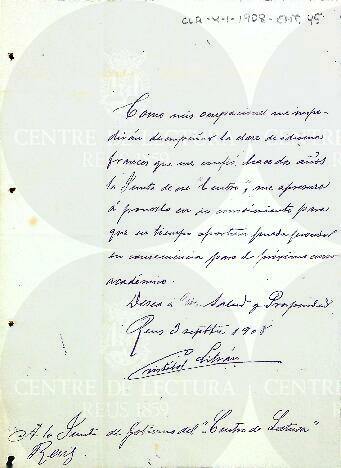 CLR-4-1-1908-ENT. 45
Como mis ocupaciones me impe-
dirán desempeñar la clase de idioma
francés que me confió, hace dos años
la Junta de ese "Centro", me apresuro
á ponerlo en su conocimiento para
que en tiempo oportuno pueda proceder
en consecuencia para el próximo curso
académico.
Deseo á Vds. Salud y Prosperidad
Reus 3 septbre 1908
Cristóbal
A la Junta de Gobierno del "Centro de Lectura"
Reus
CENTRE DE LECTURA
REUS
CENTRE DE LECTURA
REUS